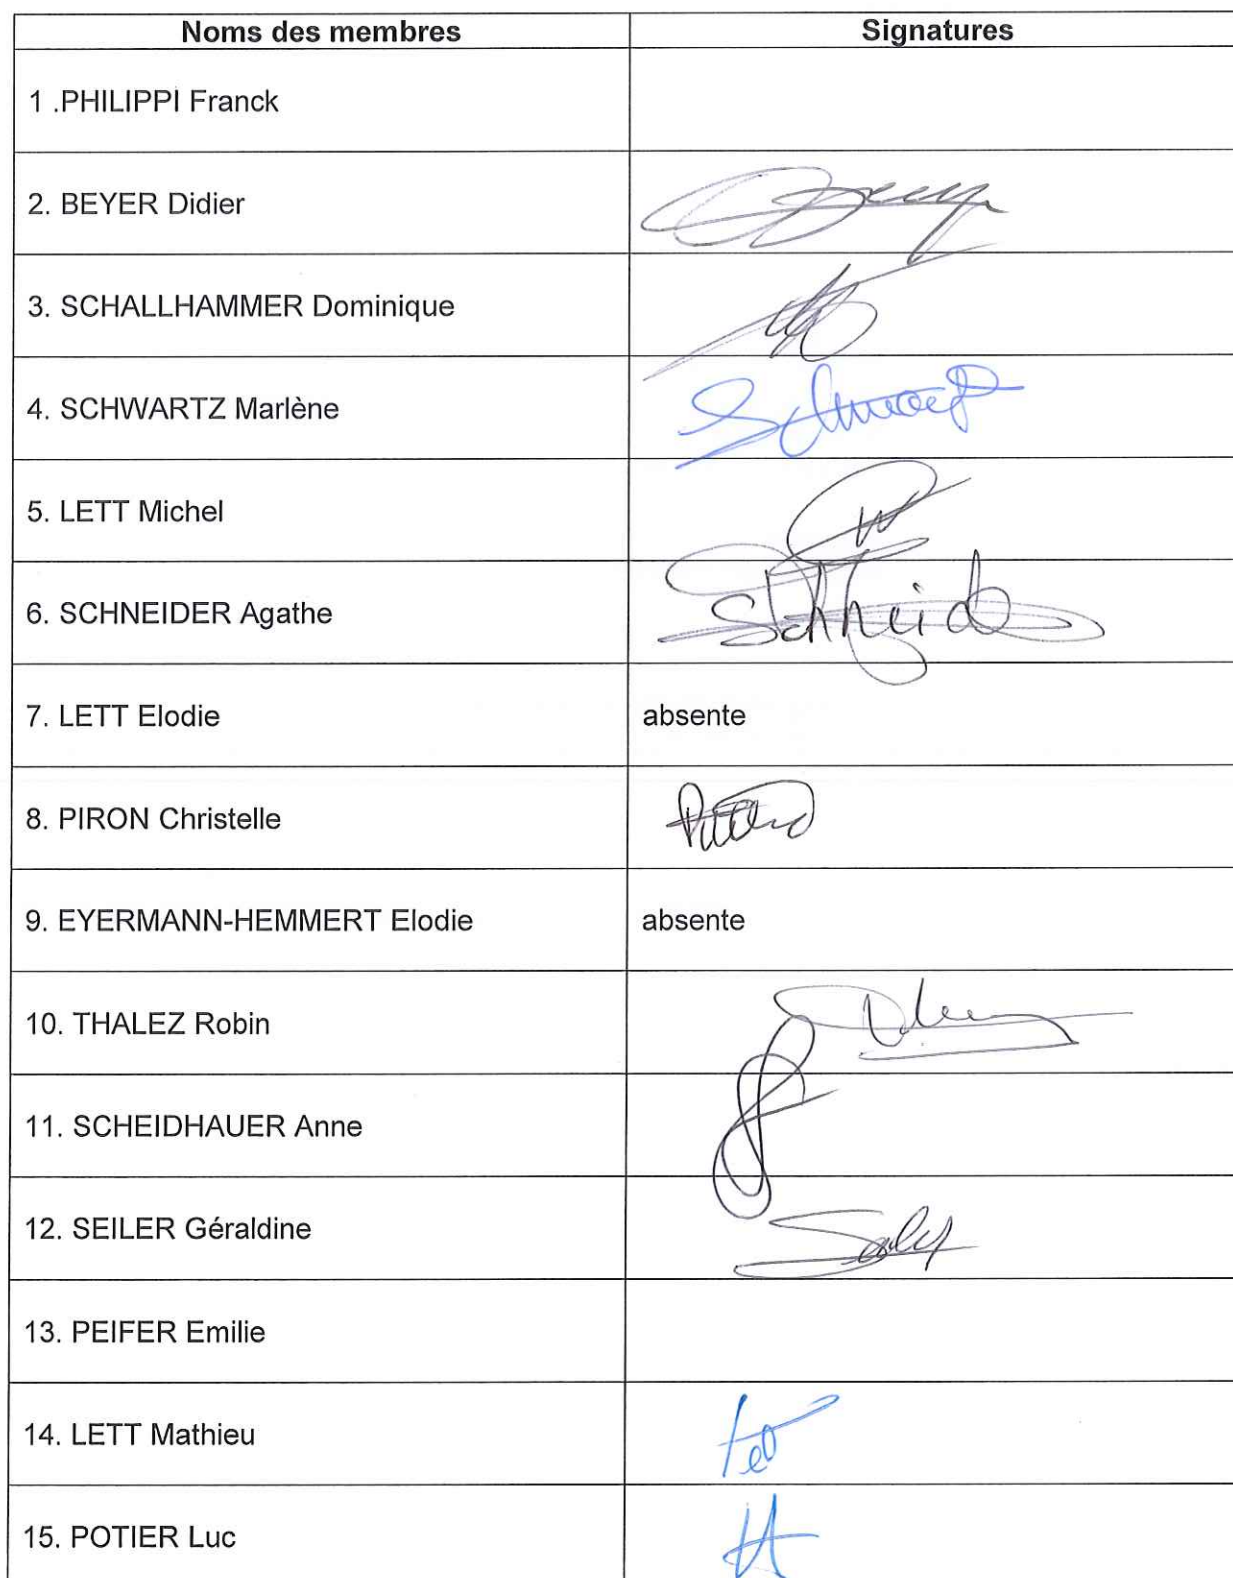 Noms des membres Signatures
1 .PHILIPPI Franck
2. BEYER Didier
3. SCHALLHAMMER Dominique
4. SCHWARTZ Marlène
5. LETT Michel
6. SCHNEIDER Agathe Schneider
7. LETT Elodie absente
8. PIRON Christelle
9. EYERMANN-HEMMERT Elodie absente
10. THALEZ Robin
11. SCHEIDHAUER Anne
12. SEILER Géraldine
13. PEIFER Emilie
14. LETT Mathieu
15. POTIER Luc